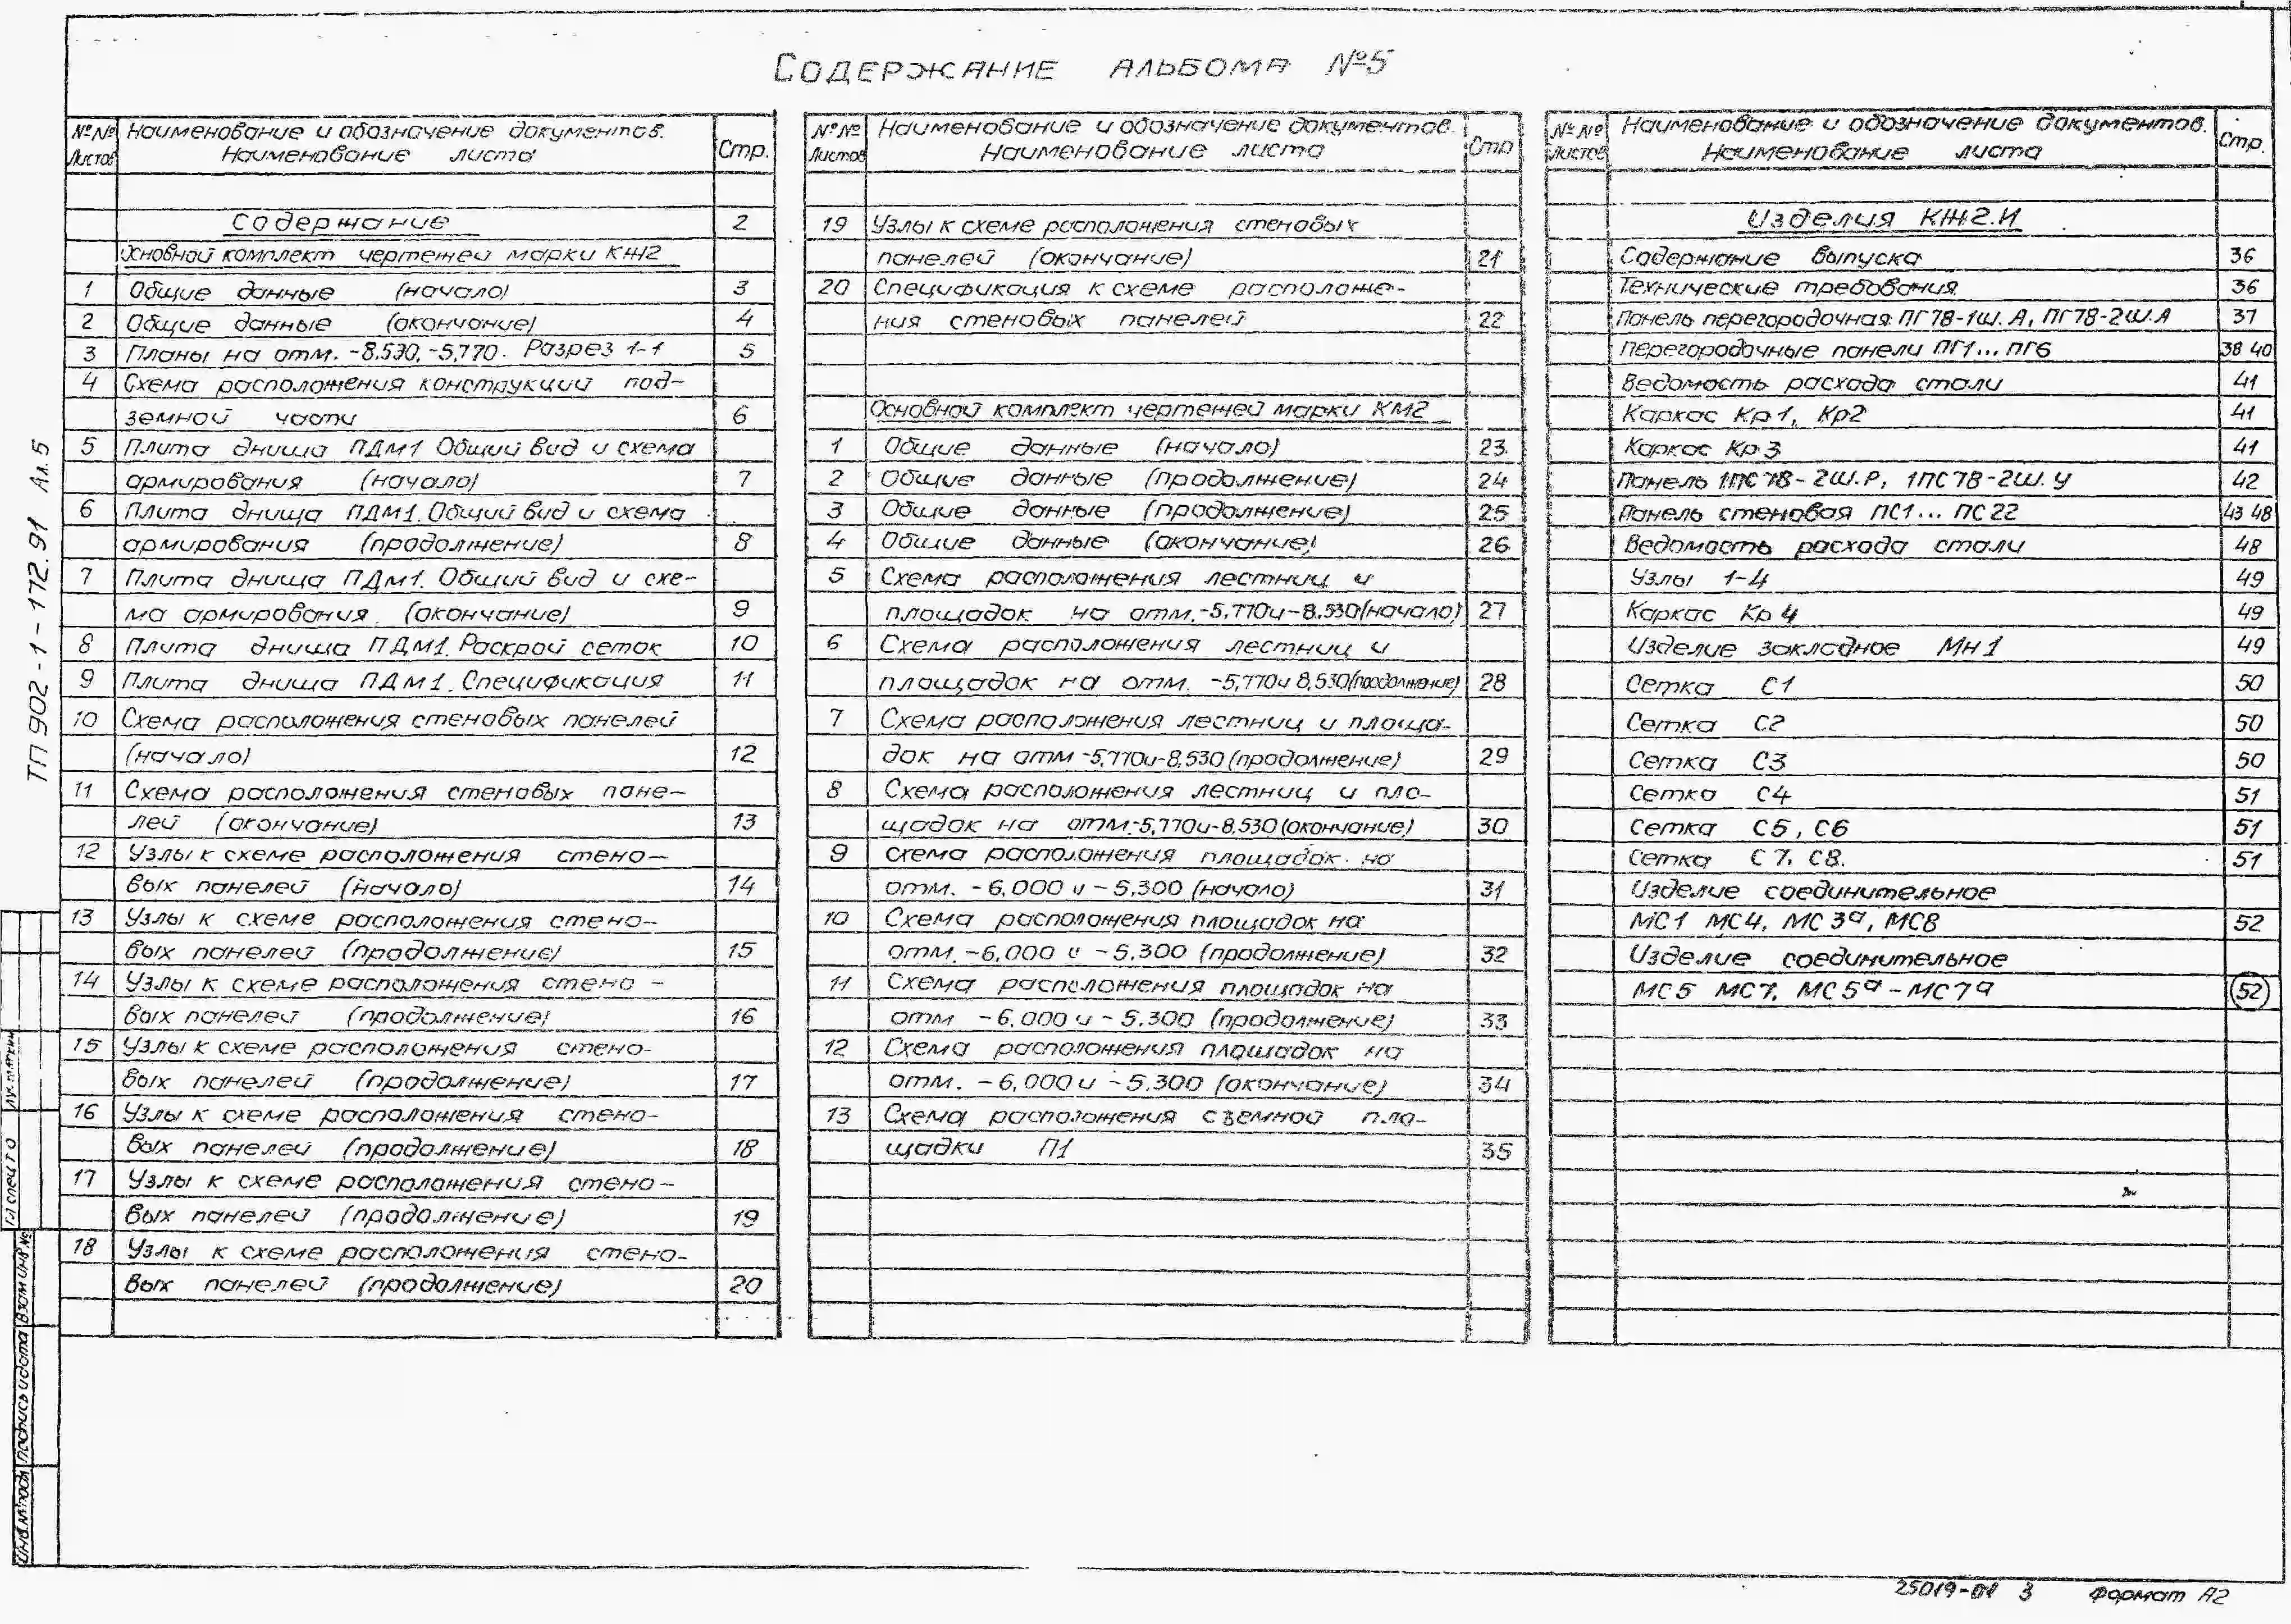 Содержание альбома №5
№№ Наименование и обозначение документов. Стр.
Листов Наименование листа
Содержание 2
Основной комплект чертежей марки КЖ2
1 Общие данные (начало) 3
2 Общие данные (окончание) 4
3 Планы на отм. -8.530, -5,770. Разрез 1-1 5
4 Схема расположения конструкций под-
земной части 6
5 Плита днища ПДм1 Общий вид и схема
армирования (начало) 7
6 Плита днища ПДм1. Общий вид и схема
армирования (продолжение) 8
7 Плита днища ПДм1. Общий вид и схе-
ма армирования. (окончание) 9
8 Плита днища ПДм1. Раскрой сеток 10
9 Плита днища ПДм1. Спецификация 11
10 Схема расположения стеновых панелей
(начало) 12
11 Схема расположения стеновых пане-
лей (окончание) 13
12 Узлы к схеме расположения стено-
вых панелей (начало) 14
13 Узлы к схеме расположения стено-
вых панелей (продолжение) 15
14 Узлы к схеме расположения стено-
вых панелей (продолжение) 16
15 Узлы к схеме расположения стено-
вых панелей (продолжение) 17
16 Узлы к схеме расположения стено-
вых панелей (продолжение) 18
17 Узлы к схеме расположения стено-
вых панелей (продолжение) 19
18 Узлы к схеме расположения стено-
вых панелей (продолжение) 20
№№ Наименование и обозначение документов. Стр
Листов Наименование листа
19 Узлы к схеме расположения стеновых
панелей (окончание) 21
20 Спецификация к схеме расположе-
ния стеновых панелей 22
Основной комплект чертежей марки КМ2
1 Общие данные (начало) 23
2 Общие данные (продолжение) 24
3 Общие данные (продолжение) 25
4 Общие данные (окончание) 26
5 Схема расположения лестниц и
площадок на отм.-5,770и-8,530(начало) 27
6 Схема расположения лестниц и
площадок на отм. -5,770и 8,530(продолжение) 28
7 Схема расположения лестниц и площа-
док на отм -5,770и-8,530 (продолжение) 29
8 Схема расположения лестниц и пло-
щадок на отм-5,770и-8,530 (окончание) 30
9 Схема расположения площадок на
отм. -6,000 и -5,300 (начало) 31
10 Схема расположения площадок на
отм. -6,000 и -5,300 (продолжение) 32
11 Схема расположения площадок на
отм -6,000 и -5,300 (продолжение) 33
12 Схема расположения площадок на
отм. -6,000 и -5,300 (окончание) 34
13 Схема расположения съемной пло-
щадки П1 35
№№ Наименование и обозначение документов. Стр.
Листов Наименование листа
Изделия КЖ2.И
Содержание выпуска 36
Технические требования 36
Панель перегородочная ПГ78-1Ш.А, ПГ78-2Ш.А 37
Перегородочные панели ПГ1...ПГ6 38 40
Ведомость расхода стали 41
Каркас Кр1, Кр2 41
Каркас Кр3 41
Панель 1ПС78-2Ш.Р, 1ПС78-2Ш.У 42
Панель стеновая ПС1...ПС22 43 48
Ведомость расхода стали 48
Узлы 1-4 49
Каркас Кр4 49
Изделие закладное Мн1 49
Сетка С1 50
Сетка С2 50
Сетка С3 50
Сетка С4 51
Сетка С5, С6 51
Сетка С7, С8. 51
Изделие соединительное
МС1 МС4, МС3а, МС8 52
Изделие соединительное
МС5 МС7, МС5а-МС7а 52
ТП 902-1-172.91 Ал.5
Гл спец т о
Взам инв №
Подпись и дата
Инв.№подл
25019-01 3 Формат А2